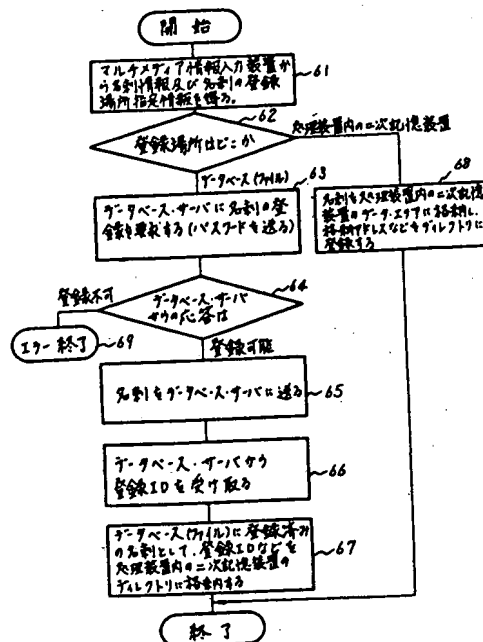 開始
マルチメディア情報入力装置か
ら名刺情報及び名刺の登録
場所指定情報を得る。
61
62
登録場所はどこか
処理装置内の二次記憶装置
データベース(ファイル)
63
68
データベース・サーバに名刺の登
録を要求する(パスワードを送る)
名刺を処理装置内の二次記憶
装置のデータ・エリアに格納し、
格納アドレスなどをディレクトリに
登録する
64
登録不可
データベース・サーバ
からの応答は
エラー終了
69
登録可能
名刺をデータベース・サーバに送る
65
データベース・サーバから
登録IDを受け取る
66
データベース(ファイル)に登録済み
の名刺として、登録IDなどを
処理装置内の二次記憶装置の
ディレクトリに格納する
67
終了